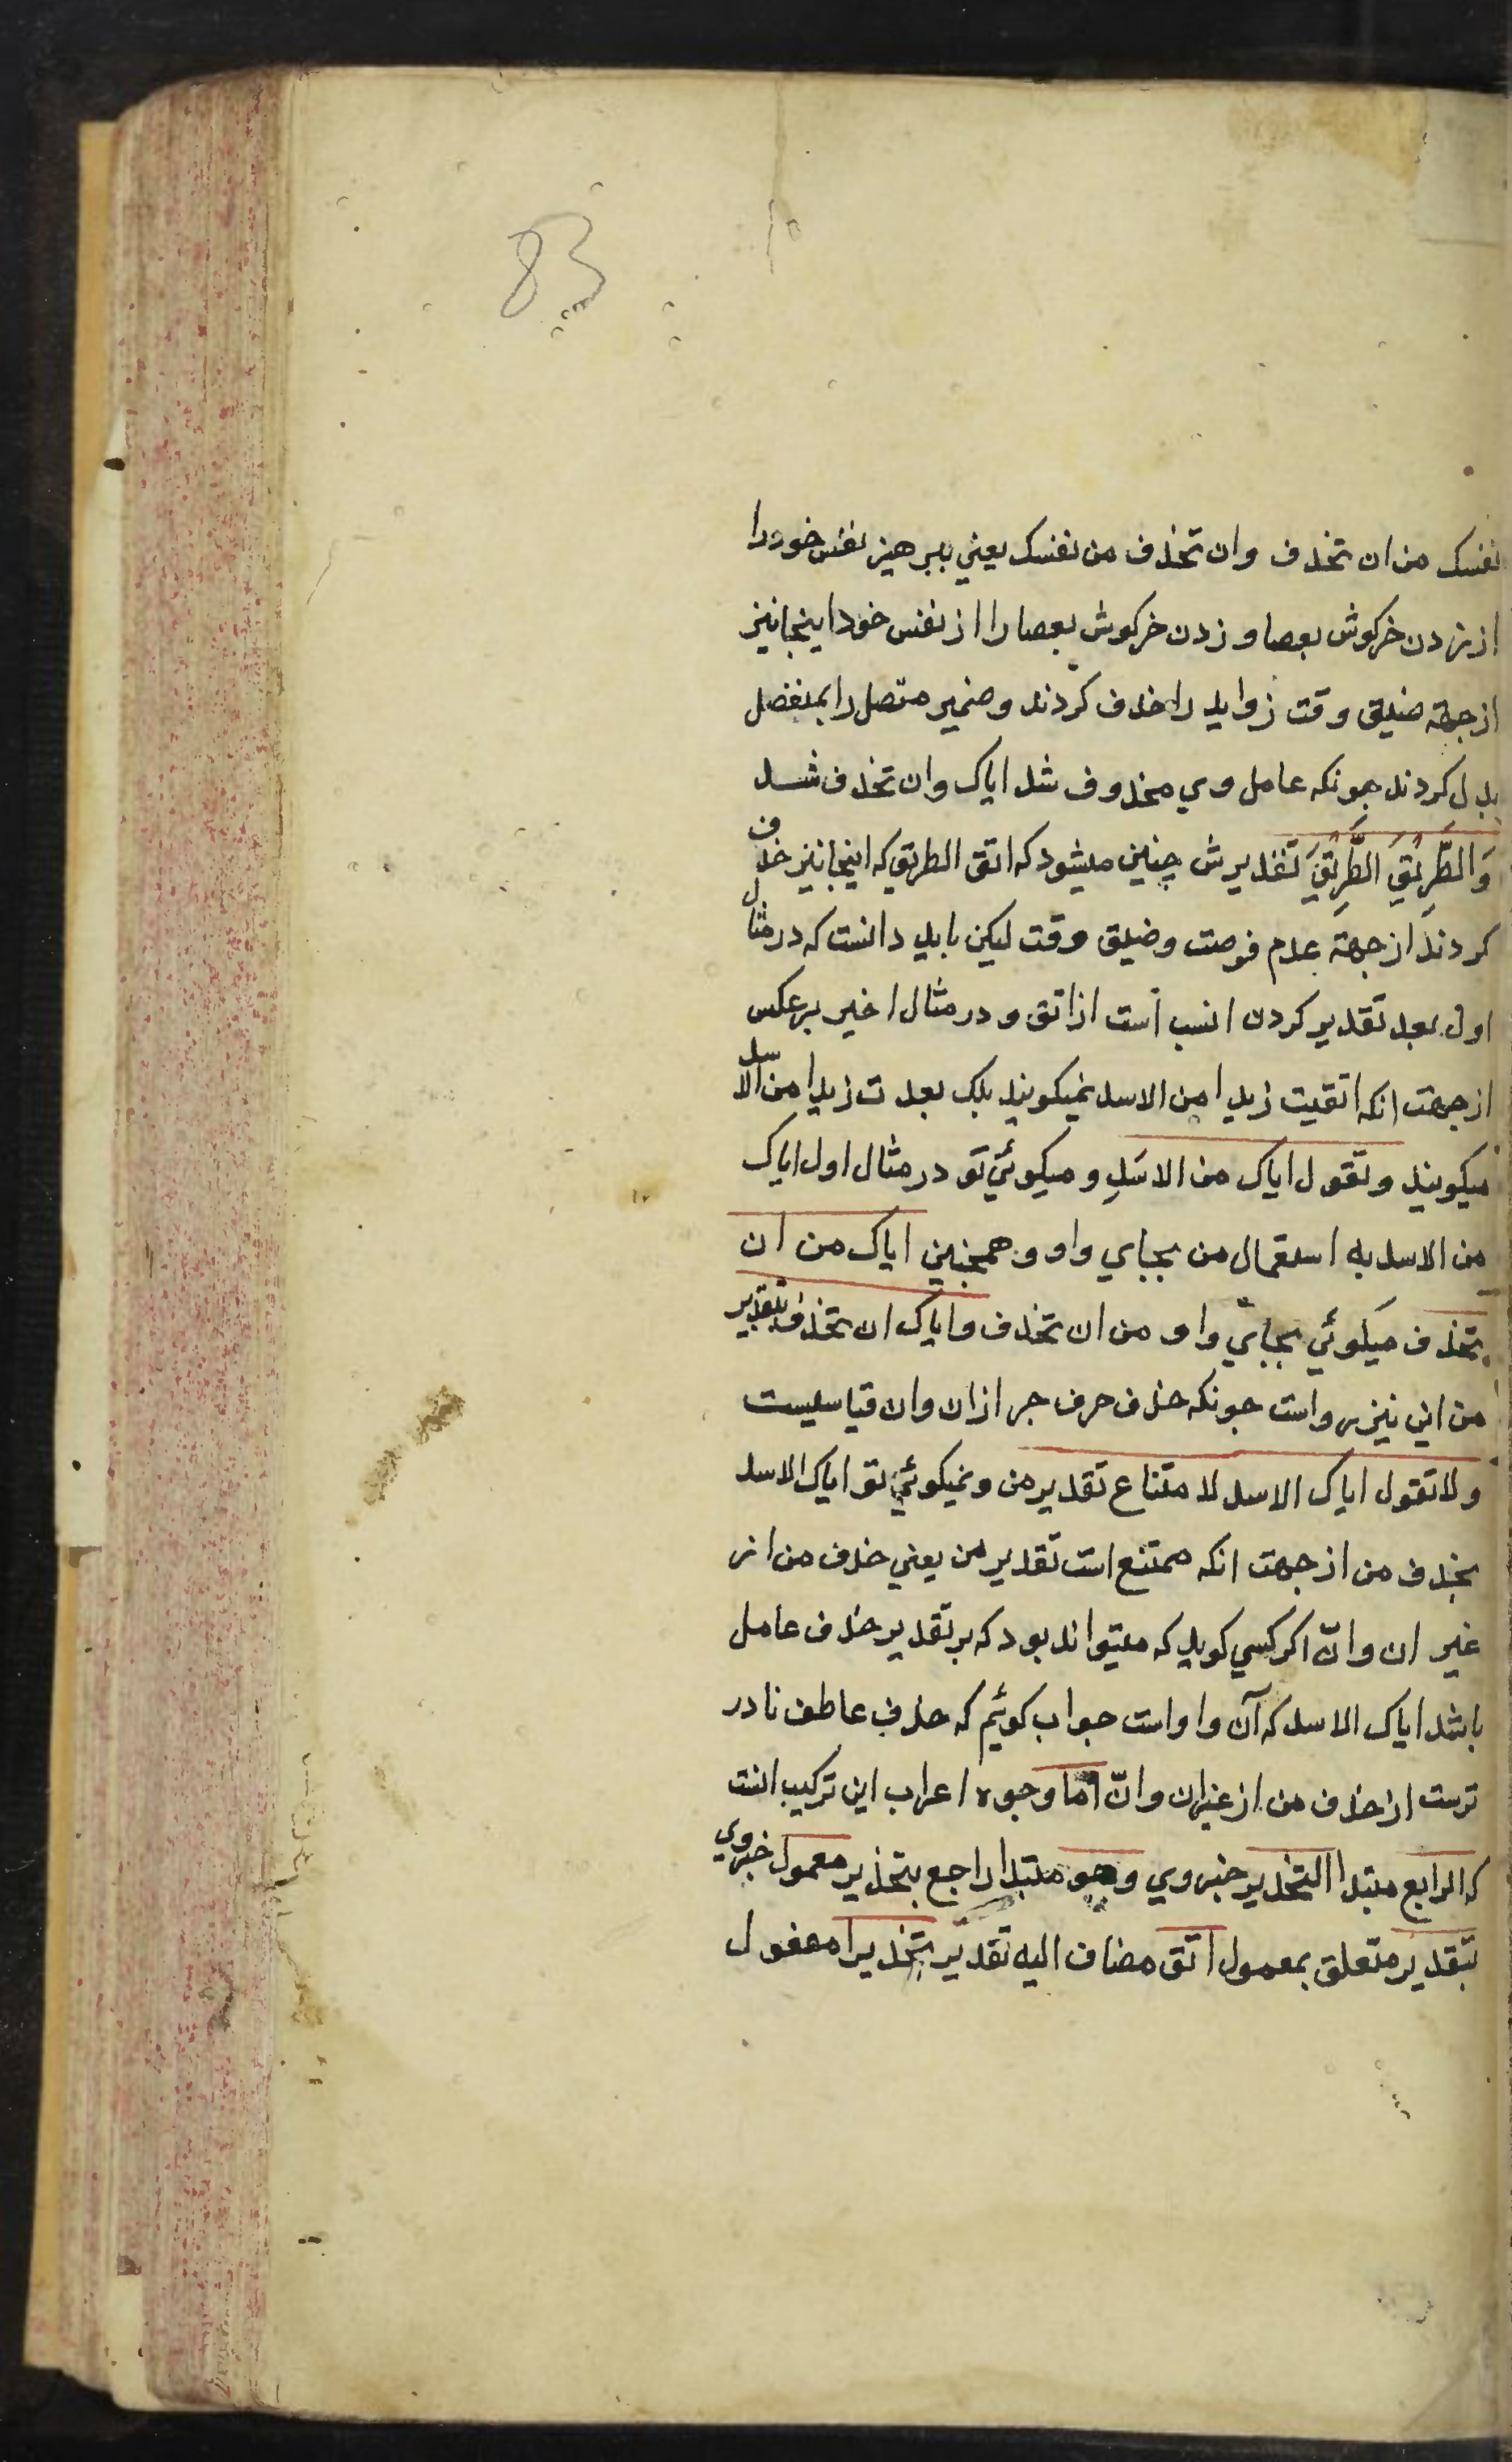 83
نفسک من ان تخذف وان تحذف من نفسک یعنی بپرهیز نفس خود را
از زدن خرکوش بعصا و زدن خرکوش بعصا را از نفس خود اینجا نیز
از جهة ضیق وقت زواید را حذف کردند و ضمیر متصل را بمنفصل
بدل کردند جونکه عامل وی محذوف شد ایاک وان تحذف شد
وَالطَّرِیْقِ الطَّرِیْقَ تقدیرش چنین میشود که اتق الطریق که اینجا نیز حذف
کردند از جهة عدم فرصت و ضیق وقت لیکن باید دانست که در مثال
اول بعد تقدیر کردن انسب است از اتق و در مثال اخیر برعکس
از جهت انکه اتقیت زیدا من الاسد نمیکویند بلک بعدت زیدا من الاسد
میکویند وتقول ایاک من الاسَدِ و میکوئی تو در مثال اول ایاک
من الاسد به استعمال من بجبای واو و همچنین ایاک من ان
تحذف میکوئی بجبای واو من ان تحذف وایاک ان تحذف بتقدیر
من این نیز رواست جونکه حذف حرف جر از ان وان قیاسیست
ولا تقول ایاک الاسد لا متناع تقدیر من و نمیکوئی تو ایاک الاسد
بحذف من از جهت انکه ممتنع است تقدیر من یعنی حذف من از
غیر ان وانّ اکر کسی کوید که میتواند بود که بر تقدیر حذف عامل
باشد ایاک الاسد که آن واو است جواب کوئیم که حذف عاطف نادر
ترست از حذف من از غیر ان وانّ اما وجوه اعراب این ترکیب انست
که الرابع مبتدا التحذیر خبر وی وهو مبتدا راجع بتحذیر معمول خبر وی
بتقدیر متعلق بمعمول اتق مضاف الیه تقدیر تحذیرا مفعول